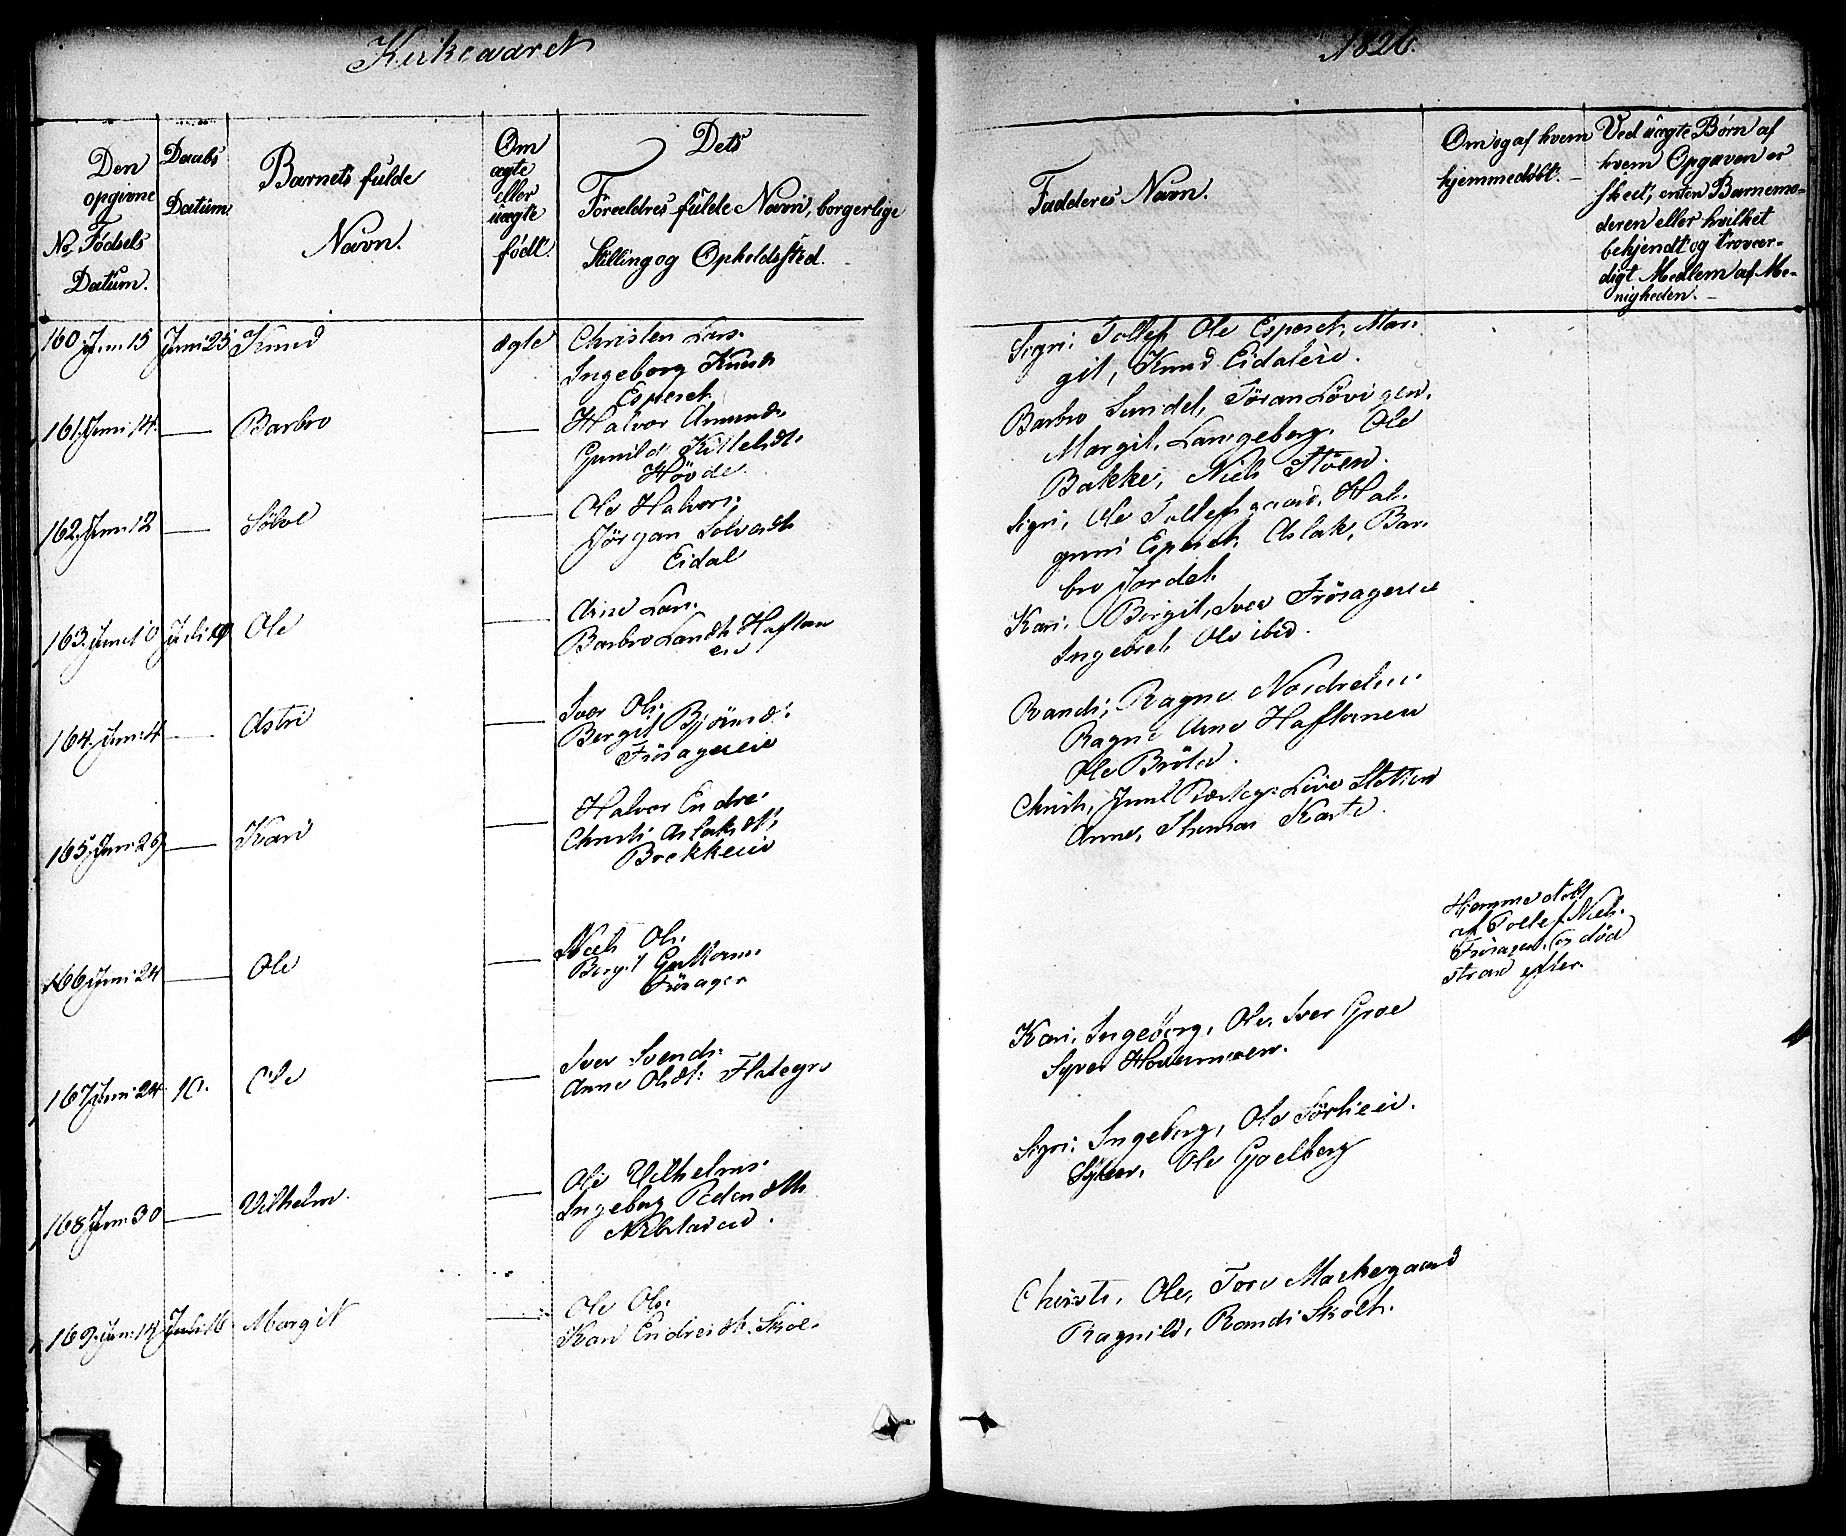 Kirkeaaret 1826.
Den opgivne Fødsels Datum.
No
Daabs Datum.
Barnets fulde Navn.
Om ægte eller uægte født.
Dets Forældres fulde Navn, borgerlige Stilling og Opholdssted.
Fadderes Navn.
Om og af hvem hjemmedøbt.
Ved uægte Børn af hvem Opgaven er skeet, enten Barnemoderen eller hvilket bekjendt og troværdigt Medlem af Menigheden.
160 Jun: 15 Juni 25 Knud ægte Christen Lars:
Ingeborg Knuds
Espeset
Sigri, Tollef, Ole Espeset, Mar-
git, Knud Eidaleie.
161. Juni 14. — Barbro — Halvor Amunds:
Gunild Kittelsdt:
Høvde
Barbro Sundet, Jöran Lövigen,
Margit, Langeberg. Ole
Bakke, Niels Støen.
162. Jun: 12 — Sølve — Ole Halvors:
Jörgan Solvesdt:
Eidal
Sigri, Ole Tollefsgaard, Hal-
gunni Espeset, Aslak, Bar-
bro Jordet.
163. Juni 10 Juli 9 Ole — Arne Lars:
Barbro Larsdt: Haftorn
eie
Kari, Birgit, Iver Frösagereie
Ingebret, Ole ibid.
164. Jun: 4 — Astri — Iver Ols:
Bergit Björnsd:
Frösagereie
Randi, Ragne Nordrehuus
Ragne Arne Haftorneie
Ole Bröto.
165. Jun: 29 — Kari — Halvor Endre:
Christi Aslaksdt:
Brekkeeie
Christi, Juul Live Statien
Anne, Thomas Kaste.
166 Juni 24 — Ole — Niels Ols:
Bergit Guttorms
Frösager
Hjemmedøbt
af Tollef Niels:
Frösager, og død
strax efter.
167 Juni 24 10. Ole — Iver Svends:
Anne Olsdt: Flategr.
Kari, Ingeborg, Ole, Iver Groe
Syver Hovermoen.
168 Jun: 30 — Vilhelm — Ole Vilhelms:
Ingeborg Pedersdt:
Sigri, Ingeborg, Ole Sörlieeie.
Syver, Ole Gjelberg
169. Jun: 14 Juli 16 Margit — Ole Ols:
Kari Endresdt: Skole
Christi, Ole, Tore Mackegaard
Ragnild, Randi Skolt.